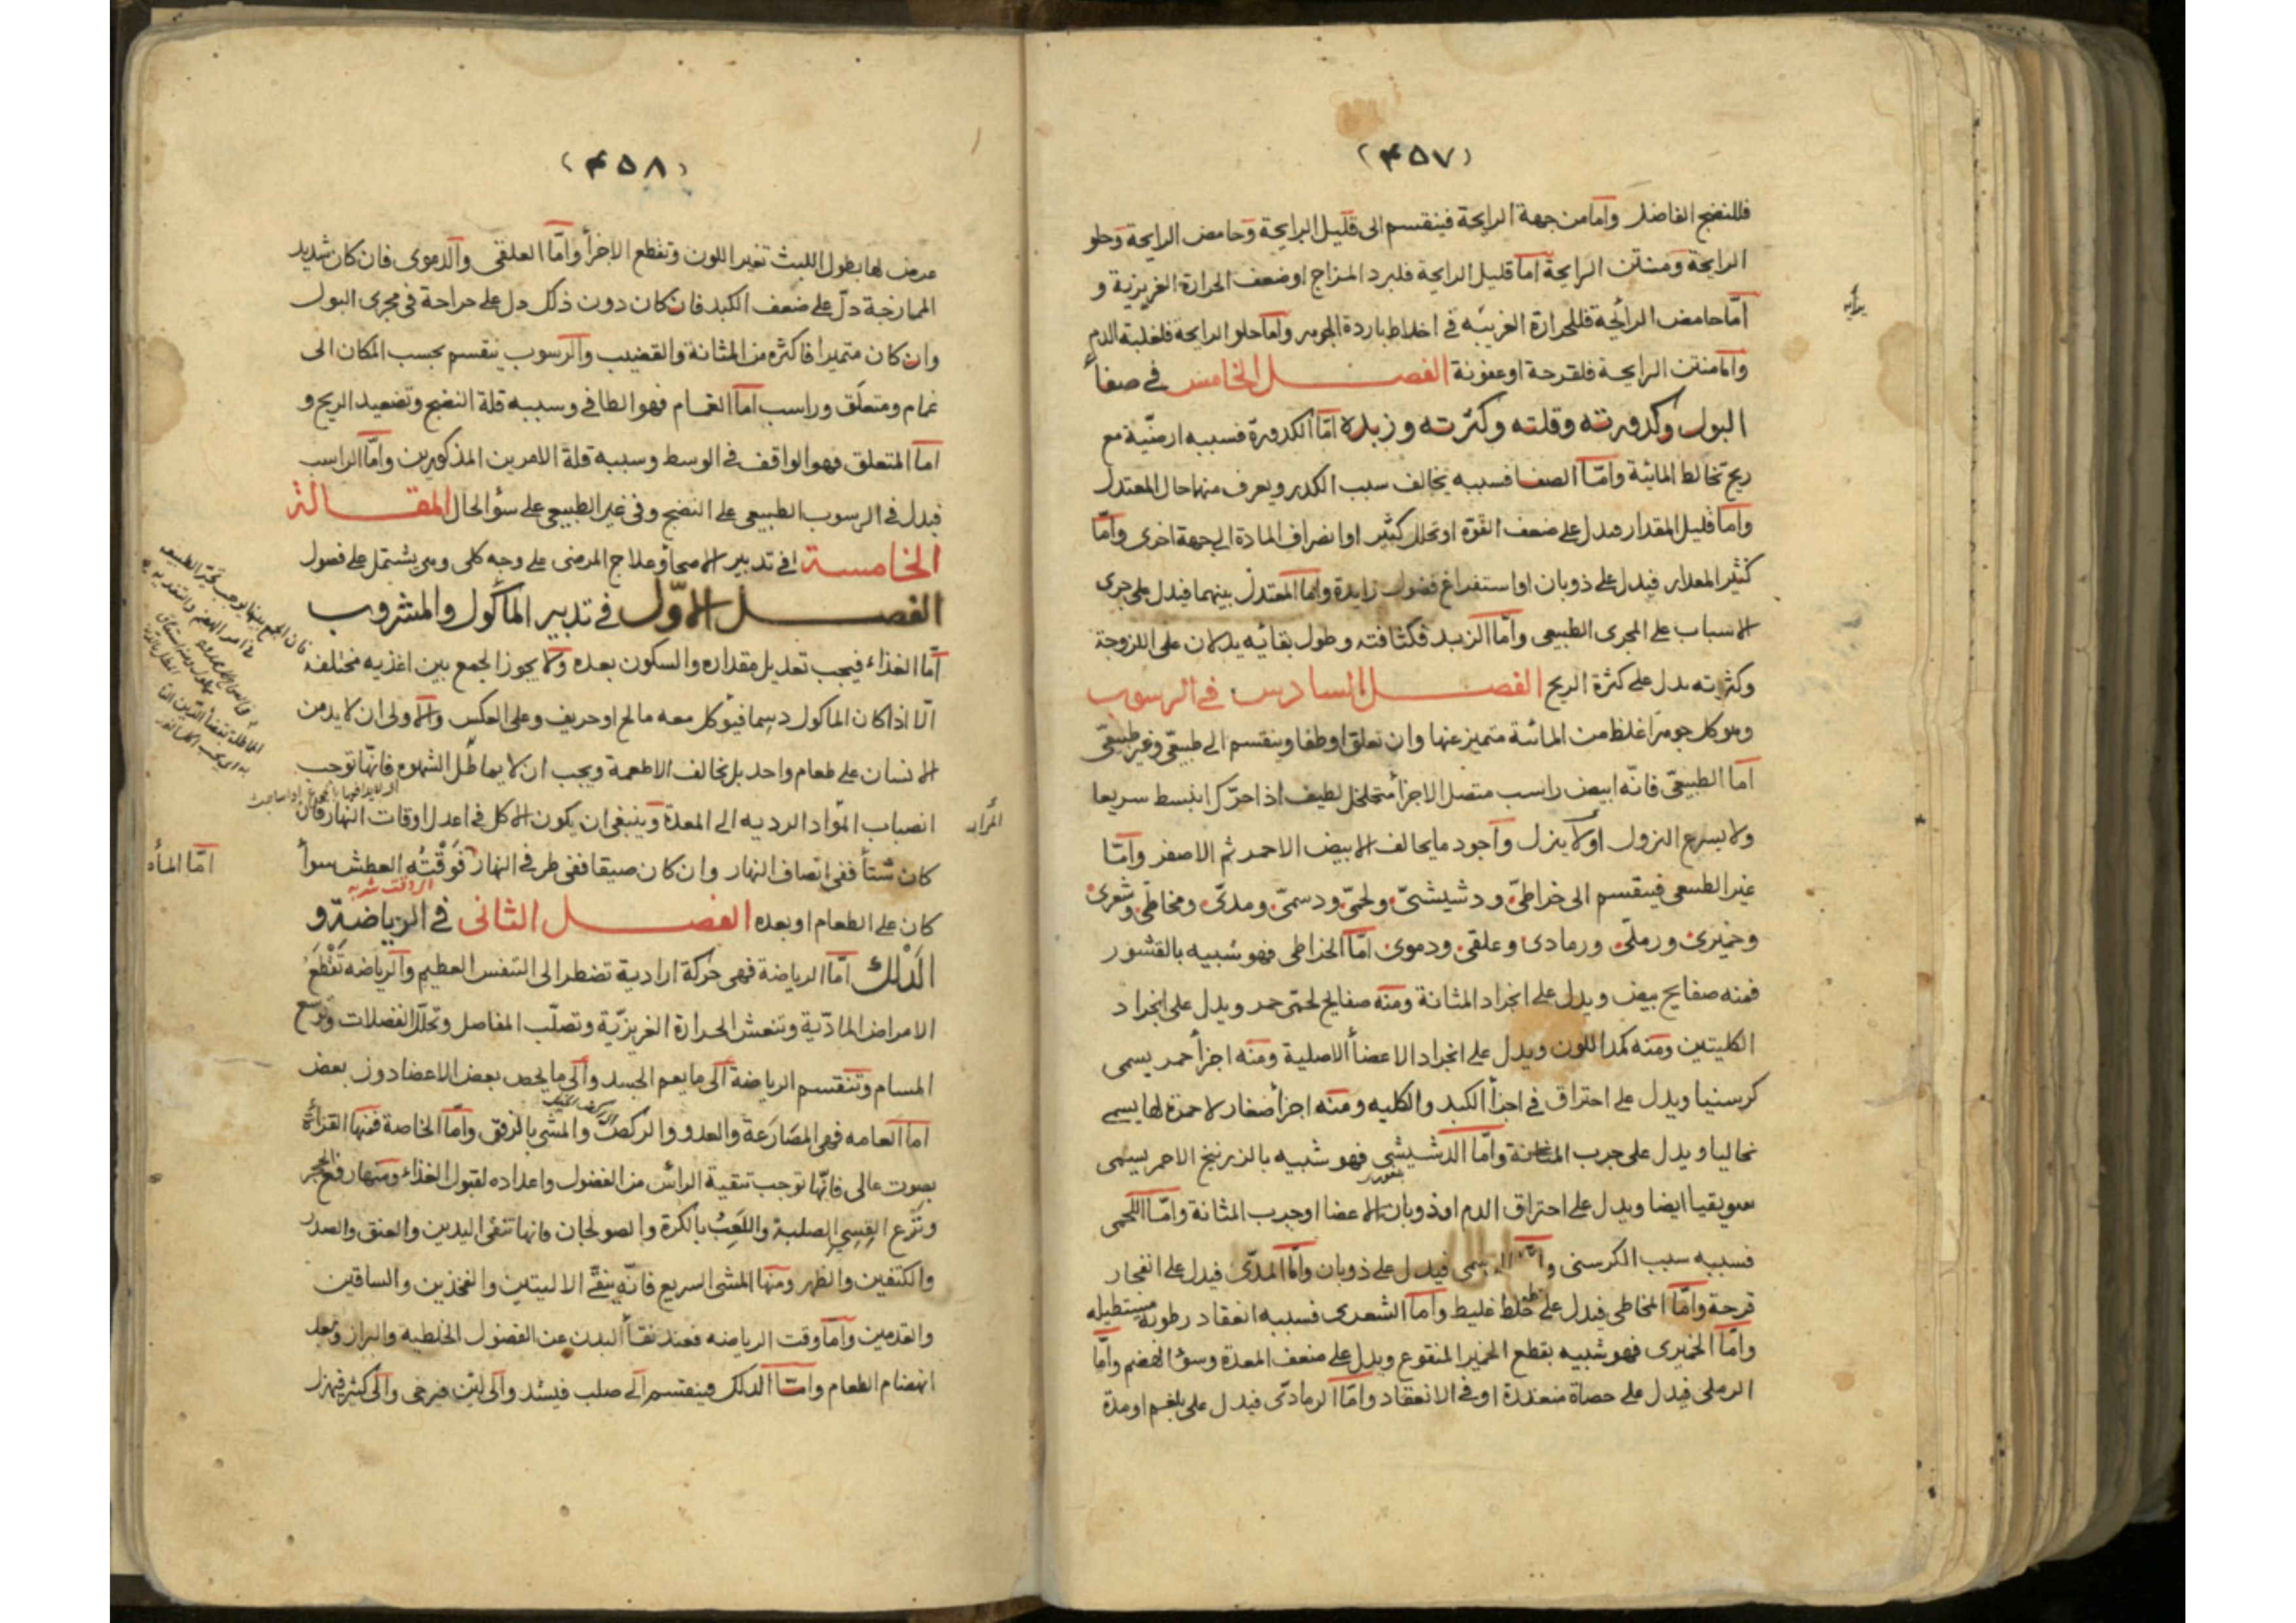 (۴۵۷)
فللنضج الفاضل وأما من جهة الرايحة فينقسم الى قليل الرايحة وحامض الرايحة وحلو
الرايحة ومنتن الرايحة أما قليل الرايحة فلبرد المزاج او ضعف الحرارة الغريزية و
أمّا حامض الرائحة فللحرارة الغريبه في اخلاط باردة الجوهر وأما حلو الرايحة فلغلبة الدم
وأما منتن الرايحة فلقرحة او عفونة الفصل الخامس في صفأ
البول وكدورته وقلته وكثرته وزبده امّا الكدورة فسببه ارضيّة مع
ريح تخالط المائية وامّا الصفا فسببه يخالف سبب الكدر ويعرف منهما حال المعتدل
واما قليل المقدار فيدل على ضعف القوّة او تحلل كثير او انصراف المادة الى جهة اخرى وامّا
كثير المقدار فيدل على ذوبان او استفراغ فضول زايدة واما المعتدل بينهما فيدل على جرى
الاسباب على المجرى الطبيعى وأمّا الزبد فكثافته وطول بقائه يدلان على اللزوجة
وكثرته يدل على كثرة الريح الفصل السادس في الرسوب
وهو كل جوهر اغلظ من المائية متميز عنها وان تعلق او طفا وينقسم الى طبيعيّ وغير طبيعيّ
اما الطبيعيّ فانّه ابيض راسب متصل الاجزأ متخلخل لطيف اذا حرّك انبسط سريعا
ولا يسرع النزول اولا ينزل وأجود ما يخالف الابيض الاحمر ثم الاصفر وامّا
غير الطبيعى فينقسم الى خراطيّ ودشيشيّ ولحميّ ودسميّ ومديّ ومخاطيّ وشعرى
وخميرى ورمليّ ورمادى وعلقى ودموى امّا الخراطى فهو شبيه بالقشور
فمنه صفايح بيض ويدل على انجراد المثانة ومنه صفايح لحميّ حمر ويدل على انجراد
الكليتين ومنه كمد اللون ويدل على انجراد الاعضأ الاصلية ومنه اجزأ حمر يسمى
كرسنيا ويدل على احتراق في اجزأ الكبد والكليه ومنه اجزأ صغار لا حمرة لها يسمى
نخاليا ويدل على جرب المثانة وامّا الدشيشى فهو شبيه بالزرنيخ الاحمر يسمى
سويقيا ايضا ويدل على احتراق الدم او ذوبان الاعضا او جرب المثانة وامّا اللحمى
فسببه سبب الكرسنى وامّا الدسمى فيدل على ذوبان وامّا المدّى فيدل على انفجار
قرحة وامّا المخاطى فيدل على خلط غليظ وأما الشعرى فسببه انعقاد رطوبة مستطيله
وامّا الخميرى فهو شبيه بقطع الخمير المنقوع ويدل على ضعف المعدة وسؤ الهضم وامّا
الرملى فيدل على حصاة منعقدة او في الانعقاد وامّا الرمادى فيدل على بلغم او مدة
(۴۵۸)
عرض لها بطول اللبث تغير اللون وتقطع الاجزأ وامّا العلقى والدموى فان كان شديد
الممازجة دلّ على ضعف الكبد فان كان دون ذلك دل على جراحة في مجرى البول
وان كان متميزا فاكثره من المثانة والقضيب والرسوب ينقسم بحسب المكان الى
غمام ومتعلّق وراسب اما الغمام فهو الطافي وسببه قلة النضج وتصعيد الريح و
اما المتعلق فهو الواقف في الوسط وسببه قلة الامرين المذكورين وامّا الراسب
فيدل في الرسوب الطبيعى على النضج وفي غير الطبيعى على سؤ الحال المقالة
الخامسة في تدبير الاصحأ وعلاج المرضى على وجه كلى وهى يشتمل على فصول
الفصل الاوّل في تدبير المأكول والمشروب
أمّا الغذاء فيجب تعديل مقداره والسكون بعده ولا يجوز الجمع بين اغذيه مختلفة
الّا اذا كان الماكول دسما فيؤكل معه مالح او حريف وعلى العكس والاولى ان لا يدمن
الانسان على طعام واحد بل يخالف الاطعمة ويجب ان لا يماطل الشهوه فانّها توجب
انصباب الموّاد الرديه الى المعدة وينبغى ان يكون الاكل في اعدل اوقات النهار فان
المرار
كان شتأ ففى انصاف النهار وان كان صيفا ففى طرفى النهار فوقته العطش سوأ
امّا المأ
كان على الطعام او بعده الفصل الثانى في الرياضة و
الدَلْك امّا الرياضة فهى حركة ارادية تضطر الى التنفس العظيم والرياضه تَقْطَعُ
الامراض المادّية وتنعش الحرارة الغريزيّة وتصلّب المفاصل وتحلّل الفضلات وتوسع
المسام وتنقسم الرياضة الى ما يعم الجسد والى ما يخص بعض الاعضا دون بعض
اما العامه فهى المصَارَعة والعدو والركض والمشى بالرفق وامّا الخاصة فمنها القرأة
بصوت عالى فانّها توجب تنقية الرأس من الفضول واعداده لقبول الغذاء ومنها رفع الحجر
ونَزع القِسِي الصلبة واللَعِبُ بالكرة والصولجان فانها تنقى اليدين والعنق والصدر
والكتفين والظهر ومنها المشى السريع فانّه ينقّى الاليتين والفخذين والساقين
والقدمين وأما وقت الرياضه فعند نقأ البدن عن الفضول الخلطيه والبراز وبعد
انهضام الطعام وامّا الدلك فينقسم الى صلب فيشد والى ليّن فيرخى والى كثير فيهزل